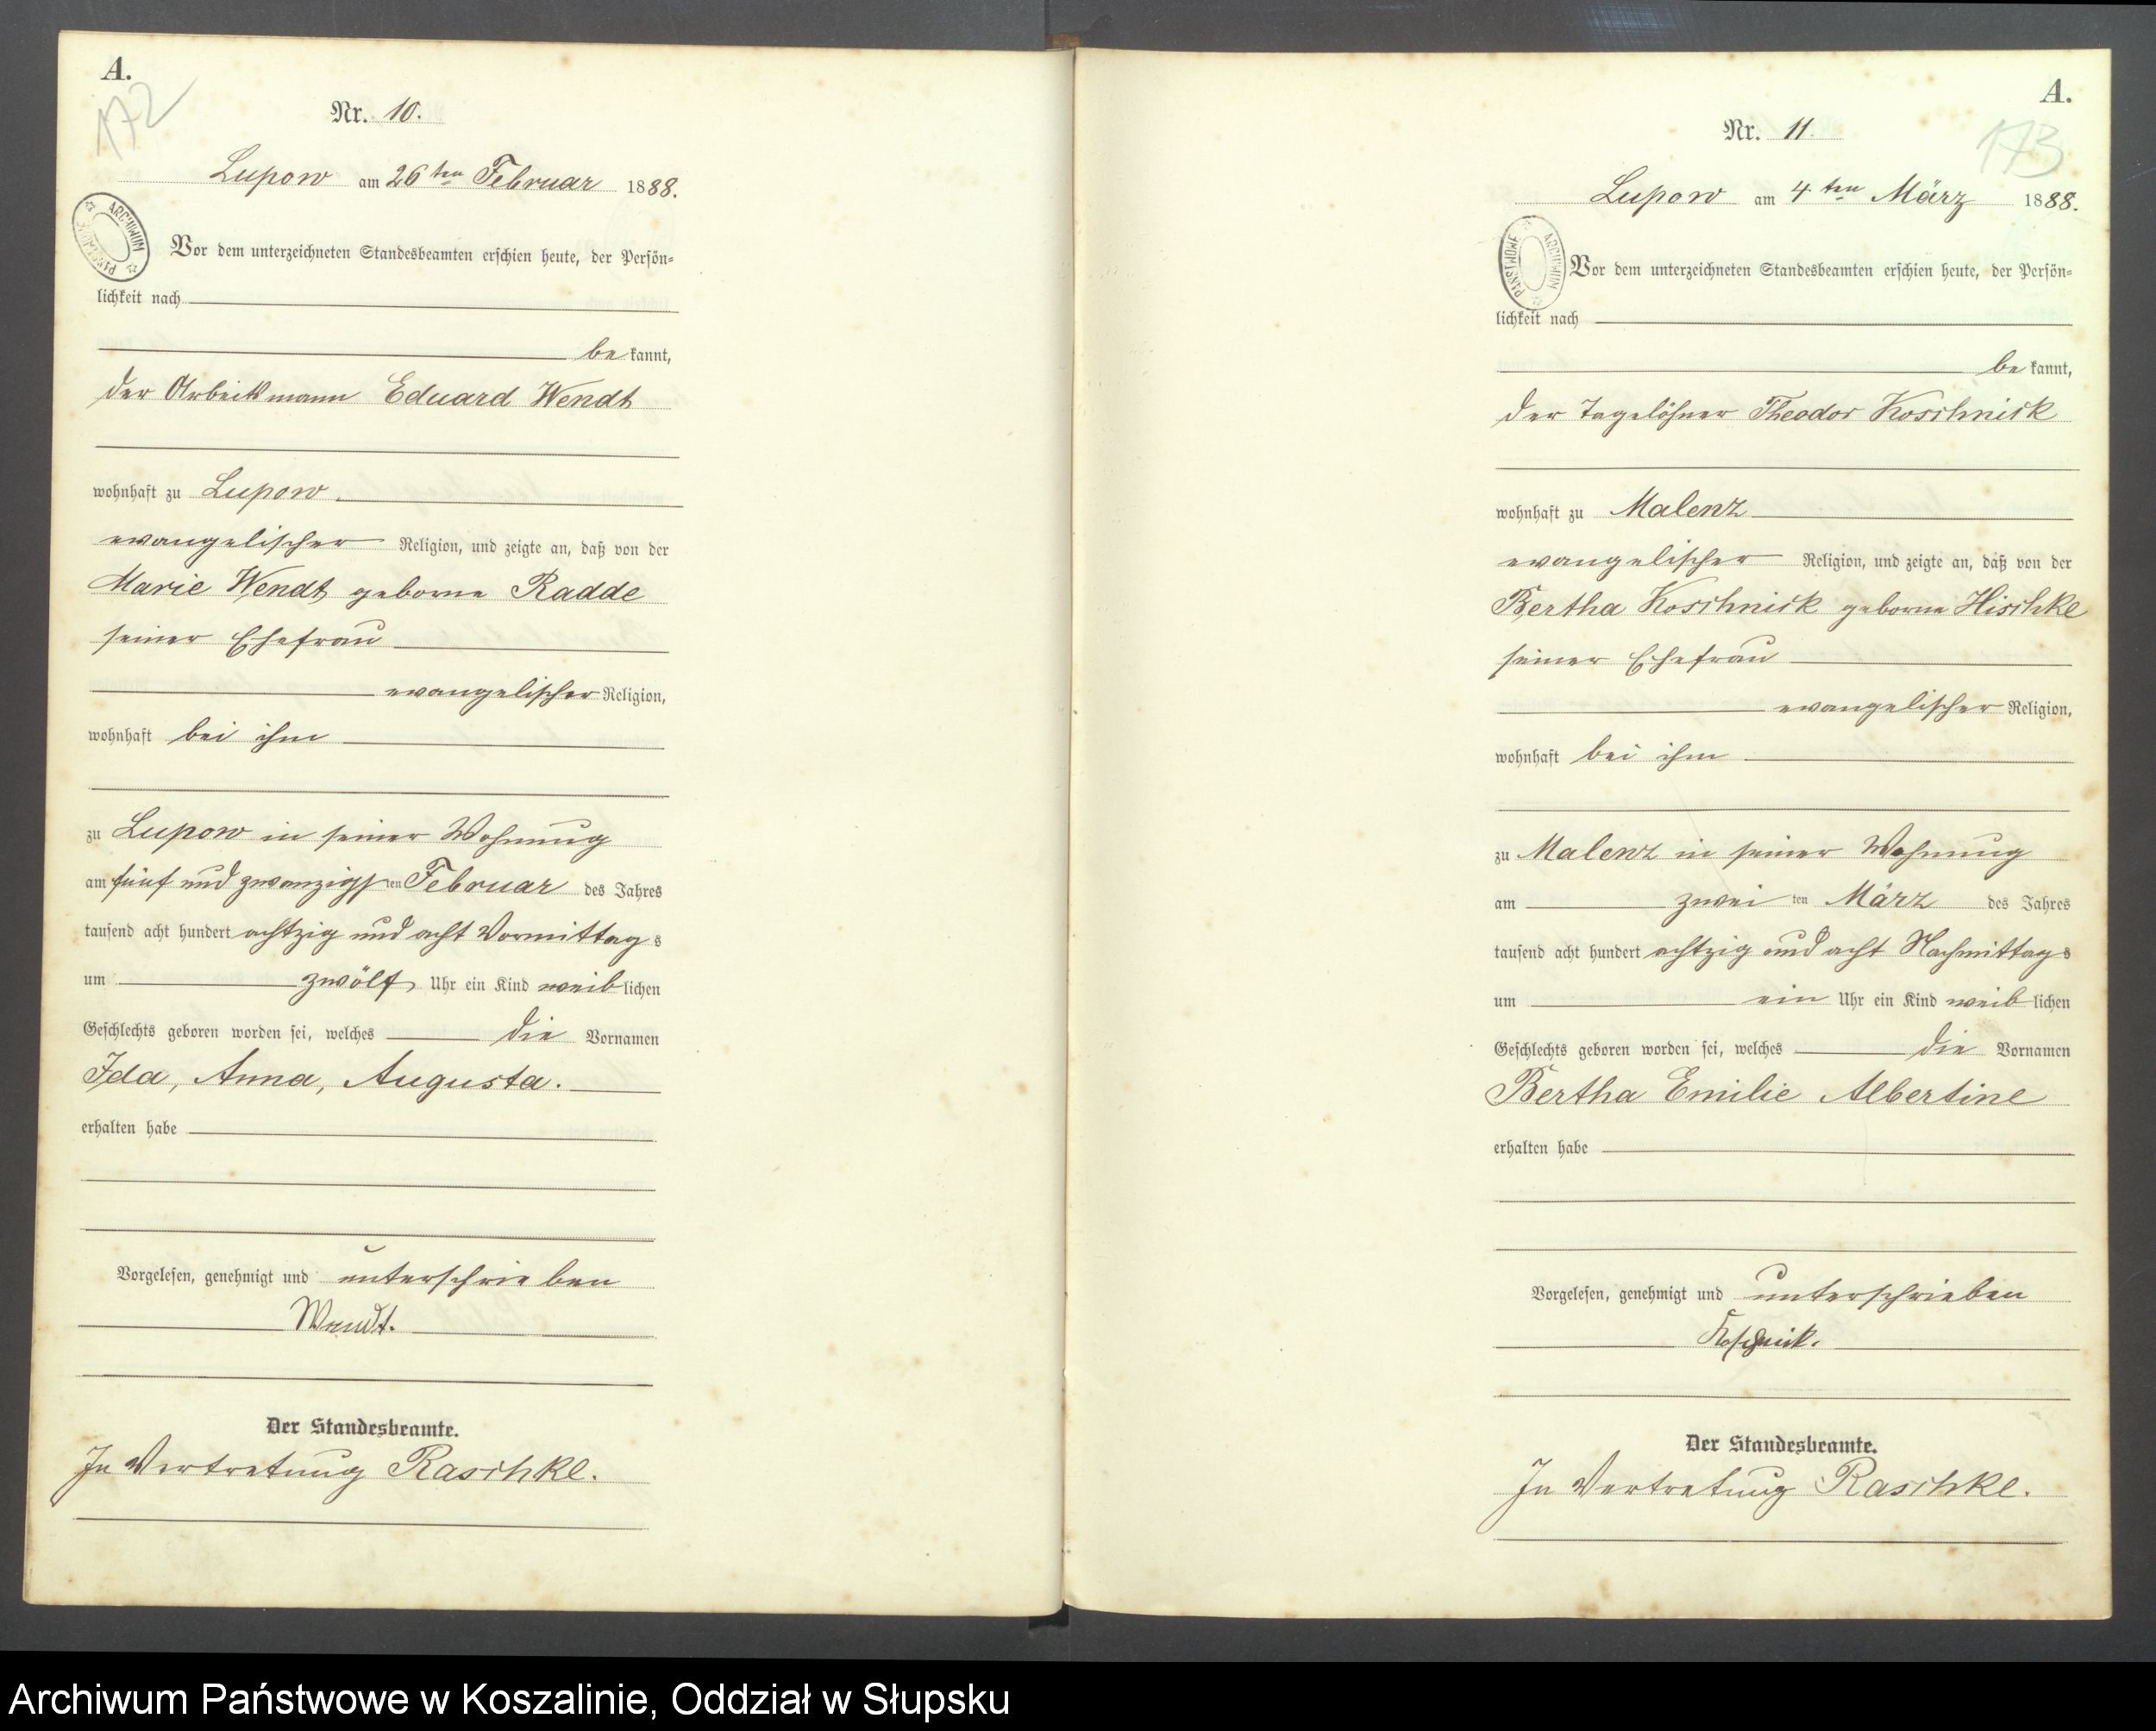 A.
172
Nr. 10.
Lupow am 26ten Februar 1888.
ARCHIWUM PAŃSTWOWE
Vor dem unterzeichneten Standesbeamten erschien heute, der Persön-
lichkeit nach
be kannt,
der Arbeitsmann Eduard Wendt
wohnhaft zu Lupow.
evangelischer Religion, und zeigte an, daß von der
Marie Wendt geborne Radde
seiner Ehefrau
evangelischer Religion,
wohnhaft bei ihm
zu Lupow in seiner Wohnung
am fünf und zwanzigsten Februar des Jahres
tausend acht hundert achtzig und acht Vormittags
um zwölf Uhr ein Kind weiblichen
Geschlechts geboren worden sei, welches die Vornamen
Ida, Anna, Augusta.
erhalten habe
Vorgelesen, genehmigt und unterschrieben
Wendt.
Der Standesbeamte.
In Vertretung Raschke.
A.
173
Nr. 11.
Lupow am 4ten März 1888.
ARCHIWUM PAŃSTWOWE
Vor dem unterzeichneten Standesbeamten erschien heute, der Persön-
lichkeit nach
be kannt,
der Tagelöhner Theodor Koschnick
wohnhaft zu Malenz
evangelischer Religion, und zeigte an, daß von der
Bertha Koschnick geborne Hischke
seiner Ehefrau
evangelischer Religion,
wohnhaft bei ihm
zu Malenz in seiner Wohnung
am zwei ten März des Jahres
tausend acht hundert achtzig und acht Nachmittags
um ein Uhr ein Kind weiblichen
Geschlechts geboren worden sei, welches die Vornamen
Bertha Emilie Albertine
erhalten habe
Vorgelesen, genehmigt und unterschrieben
Koschnick.
Der Standesbeamte.
In Vertretung Raschke.
Archiwum Państwowe w Koszalinie, Oddział w Słupsku